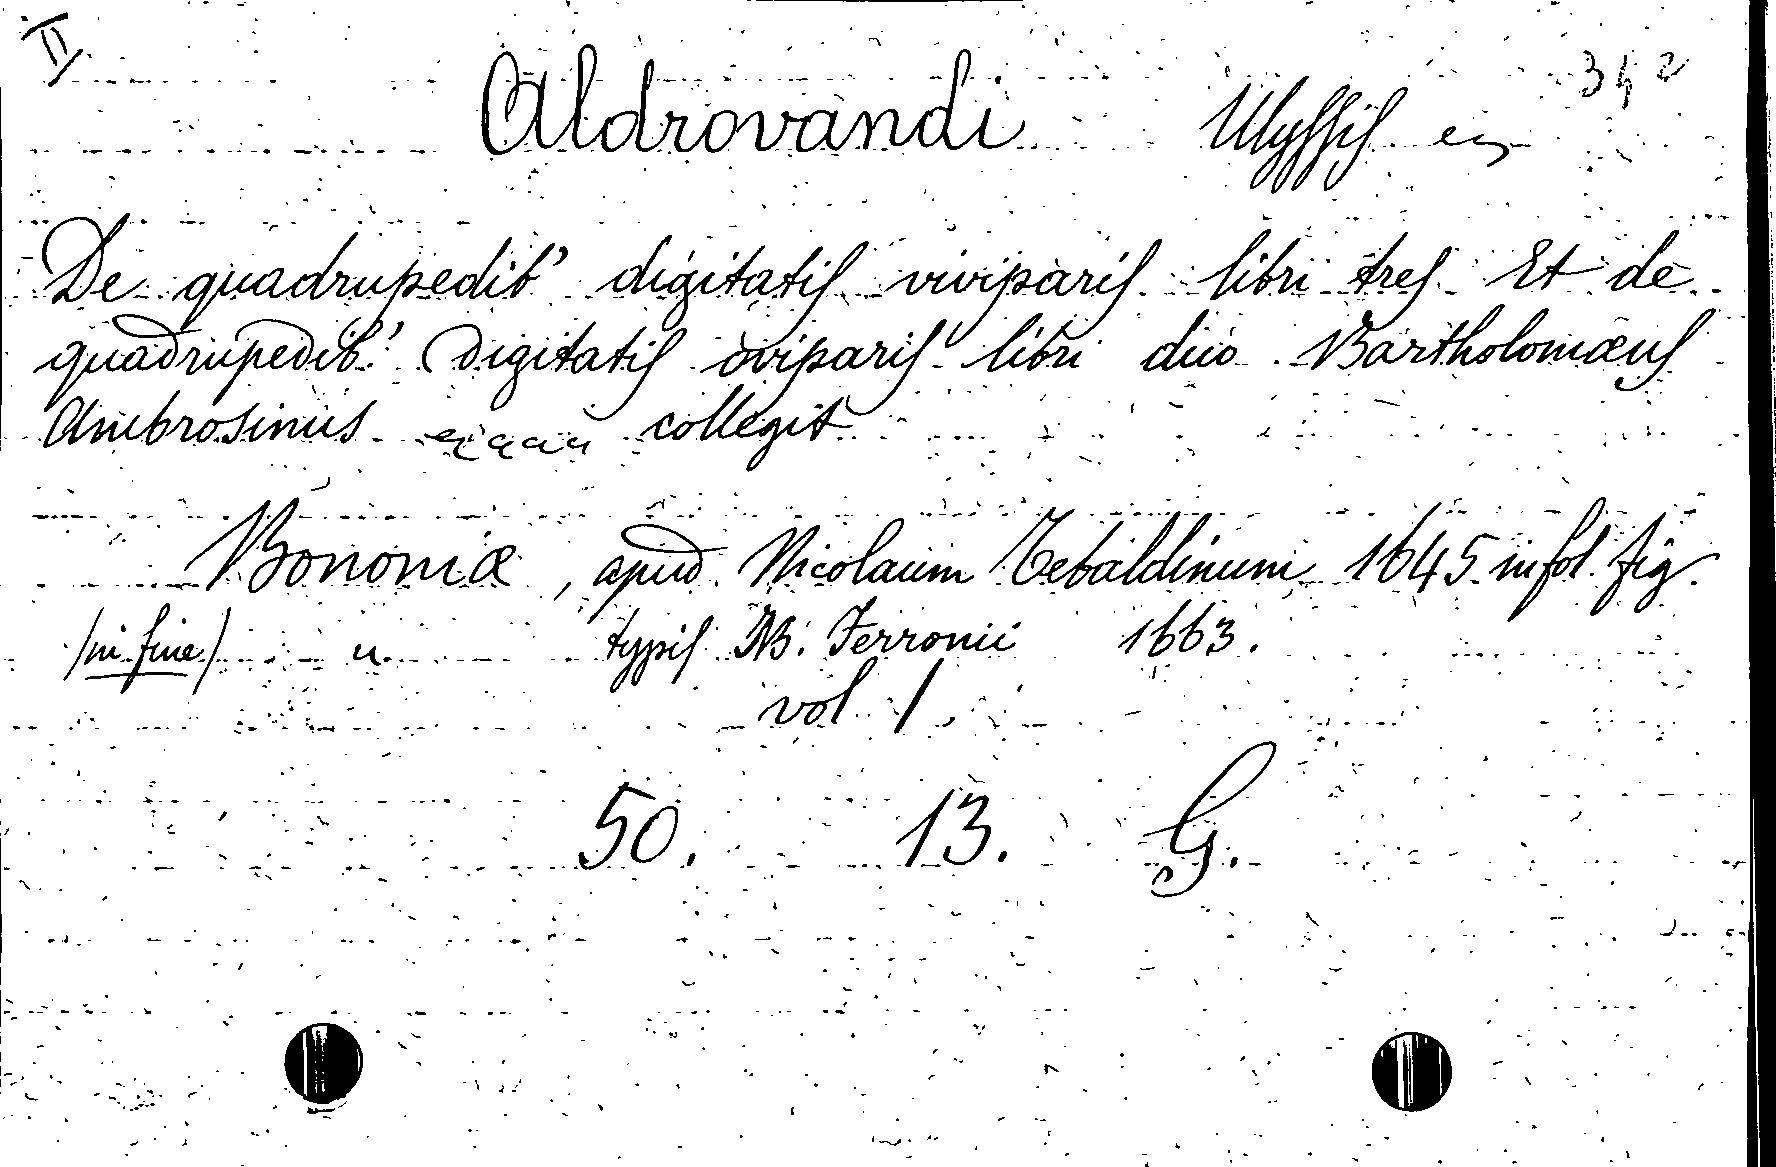 II
Aldrovandi Ulyssis
De quadrupedib' digitatis viviparis libri tres Et de
quadrupedib' digitatis oviparis libri duo Bartholomæus
Ambrosinus collegit
Bononiæ, apud Nicolaum Tebaldinum 1645 in fol. fig.
/in fine/ typis JB. Ferronii 1663.
vol 1
50. 13. G.